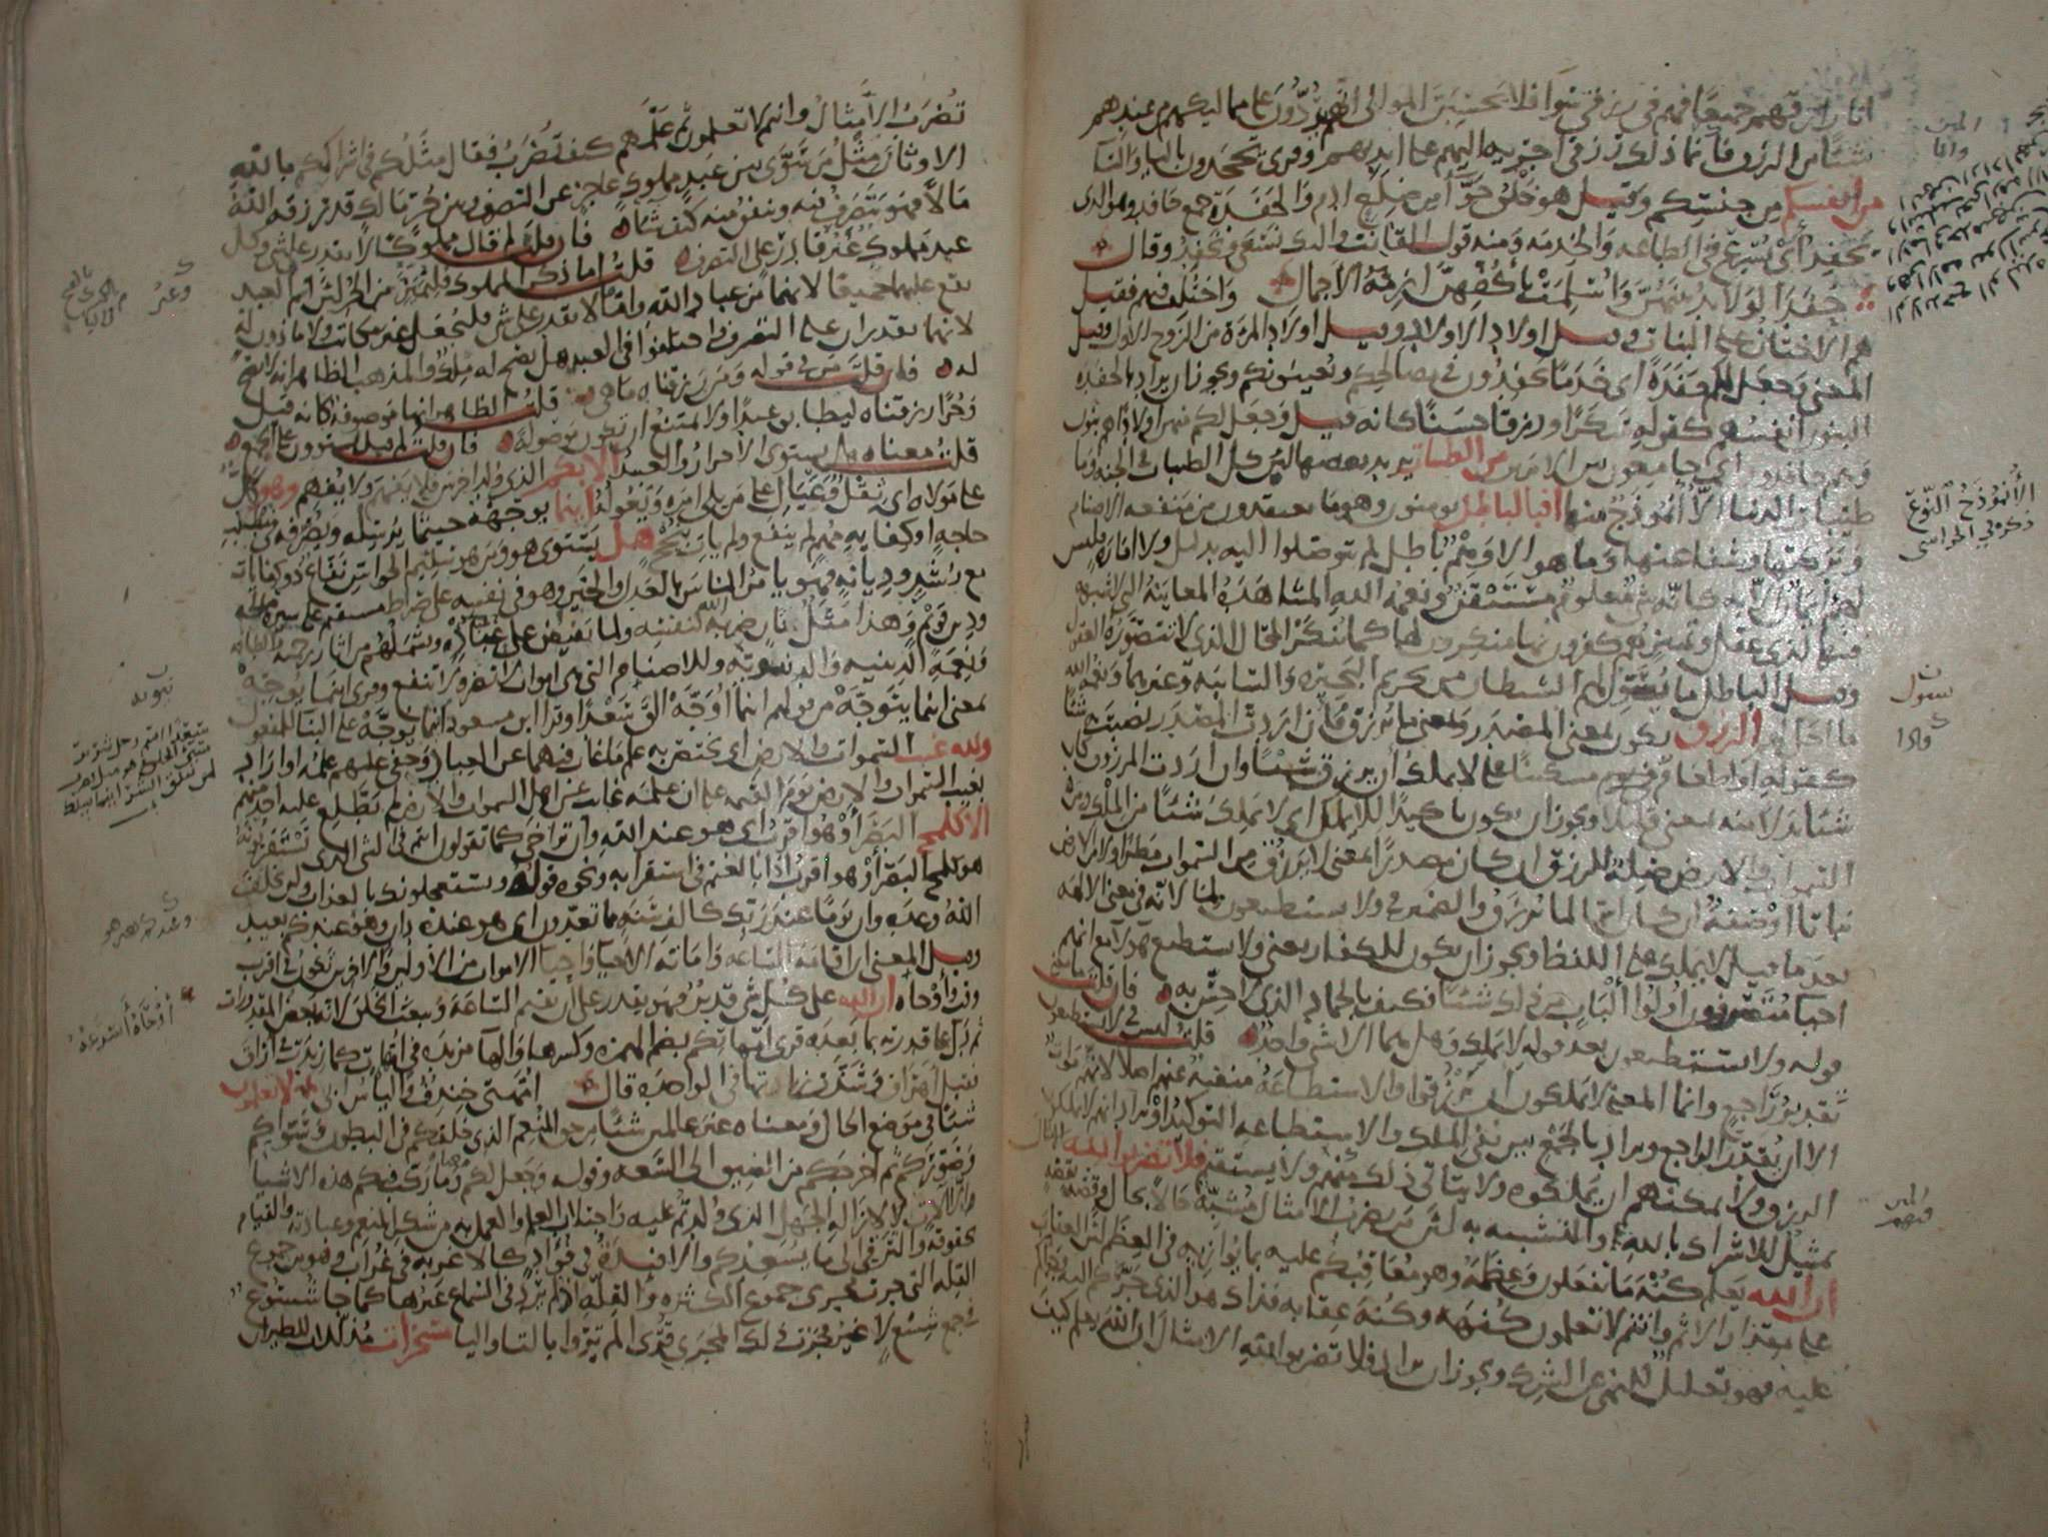 انا رازقهم جميعا فهم في رزقي سوا فلا يحسبن الموالي انهم يردون على مماليكهم من عندهم
شيئا من الرزق فانما ذلك رزقي اجريه اليهم على ايديهم وقرئ يجحدون باليا والتا
من انفسكم من جنسكم وقيل هو خلق حوا من ضلع ادم والحفدة جمع حافد وهو الذي
يحفد أي يسرع في الطاعه والخدمه ومنه قول القانت واليك نسعى ونحفد وقال
حفد الولائد بينهن وأسلمت بأكفهن ازمة الأجمال واختلف فيهم فقيل
هم الاختان على البنات وقيل اولاد الاولاد وقيل اولاد المرة من الزوج الاول وقيل
المعنى وجعل لكم حفدة أي خدما يحفدون في مصالحكم ويعينونكم ويجوز ان يراد بالحفدة
البنون انفسهم كقوله سكرا ورزقا حسنا كانه قيل وجعل لكم منهن اولادا هم بنون
وهم حافدون اي جامعون بين الامرين من الطيبات يريد بعضها لان كل الطيبات في الجنة وما
طيبات الدنيا الا أنموذج منها افبالباطل يومنون وهو ما يعتقدون من منفعه الاصنام
وبركتها وشفاعتها وما هو الا وهم باطل لم يتوصلوا اليه بدليل ولا امارة فليس
لهم ايمان الا به كانه شي معلوم مستيقن ونعمة الله المشاهدة المعاينة التي لا شبهه
فيها لذي عقل وتمييز هم كافرون بها منكرون لها كما ينكر المحال الذي لا تتصوره العقول
وقيل الباطل ما يسول لهم الشيطان من تحريم البحيرة والسائبة وغيرهما ونعمة الله
ما احل لهم الرزق يكون بمعنى المصدر وبمعنى ما يرزق فان اردت المصدر نصبت به شيئا
كقوله أو اطعام يتيما على لا يملك أن يرزق شيئا وان أردت المرزوق كان
شيئا بدلا منه بمعنى قليلا ويجوز ان يكون تاكيدا للا يملك أي لا يملك شيئا من الملك ومن
السموات والارض صلة للرزق ان كان مصدرا بمعنى لا يرزق من السموات مطرا ولا من الارض
نباتا أو صفة ان كان اسما لما يرزق والضمير في ولا يستطيعون لما لانه في معنى الالهة
بعد ما قيل لا يملك على اللفظ ويجوز ان يكون للكفار يعني ولا يستطيع هولاء مع انهم
احيا متصرفون اولوا ألباب من ذلك شيئا فكيف بالجماد الذي لا حس به فان قلت ما معنى
قوله ولا يستطيعون بعد قوله لا يملك وهل هما الا شي واحد قلت ليس في لا يستطيعون
تقدير راجع وانما المعنى لا يملكون أن يرزقوا والاستطاعة منفية عنهم اصلا لانهم موات
الا ان يقدر الراجع ويراد بالجمع بين نفي الملك والاستطاعه التوكيد او يراد انهم لا يملكون
الرزق ولا يمكنهم ان يملكوه ولا يتاتى ذلك منهم ولا يستقيم فلا تضربوا لله الامثال
تمثيل للاشراك بالله والتشبيه به لان من يضرب الامثال مشبه حالا بحال وقصة بقصة
ان الله يعلم كنه ما تفعلون وعظمه وهو معاقبكم عليه بما يوازيه في العظم لان العقاب
على مقدار الاثم وانتم لا تعلمون كنهه وكنه عقابه فذاك هو الذي جركم اليه وجراكم
عليه فهو تعليل للنهي عن الشرك ويجوز ان يراد فلا تضربوا لله الامثال ان الله يعلم كيف
الأنموذج النوع
ذكره في الحواشي
تضرب الأمثال وانتم لا تعلمون ثم علمهم كيف تضرب فقال مثلكم في اشراككم بالله
الاوثان مثل من سوى بين عبد مملوك عاجز عن التصرف وبين حر مالك قد رزقه الله
مالا فهو يتصرف فيه وينفق منه كيف شاء فان قلت لم قال مملوكا لا يقدر على شي وكل
عبد مملوك وغير قادر على التصرف قلت اما ذكر المملوك فليميز من الحر لان اسم العبد
يقع عليهما جميعا لانهما من عباد الله واما لا يقدر على شي فليجعل غير مكاتب ولا ماذون له
لانهما يقدران على التصرف واختلفوا في العبد هل يصح له ملك والمذهب الظاهر انه لا يصح
له فان قلت من في قوله ومن رزقناه ما هي قلت الظاهر انها موصوفة كانه قيل
وحرا رزقناه ليطابق عبدا ولا يمتنع ان تكون موصولة فان قلت لم قيل يستوون على الجمع
قلت معناه هل يستوي الاحرار والعبيد الابكم الذي ولد اخرس فلا يفهم ولا يفهم وهو كل
على مولاه اي ثقل وعيال على من يلي امره ويعوله اينما يوجهه حيثما يرسله ويصرفه في مطلب
حاجة او كفاية مهم لم ينفع ولم يات بنجح هل يستوي هو ومن هو سليم الحواس نفاع ذو كفايات
مع رشد وديانة فهو يامر الناس بالعدل والخير وهو في نفسه على صراط مستقيم على سيرة صالحة
ودين قويم وهذا مثل ثان ضربه الله لنفسه ولما يفيض على عباده ويشملهم من اثار رحمته والطافه
ونعمه الدينيه والدنيويه وللاصنام التي هي اموات لا تضر ولا تنفع وقرئ اينما يوجه
بمعنى اينما يتوجه من قولهم اينما أوجه ألق سعدا وقرا ابن مسعود اينما يوجه على البنا للمفعول
ولله غيب السموات والارض أي يختص به علم ما غاب فيهما عن العباد وخفي عليهم علمه او اراد
بغيب السموات والارض يوم القيمه على ان علمه غائب عن اهل السموات والارض لم يطلع عليه احد منهم
الا كلمح البصر أو هو اقرب أي هو عند الله وان تراخى كما تقولون انتم في الشي الذي تستقربونه
هو كلمح البصر أو هو اقرب اذا بالغتم في استقرابه ونحوه قوله ويستعجلونك بالعذاب ولن يخلف
الله وعده وان يوما عند ربك كالف سنة مما تعدون اي هو عنده دان وهو عندكم بعيد
وقيل المعنى ان اقامة الساعه واماتة الأحيا وإحيا الاموات من الأولين والاخرين يكون في اقرب
وقت وأوحاه ان الله على كل شي قدير فهو يقدر على أن يقيم الساعة ويبعث الخلق لانه بعض المقدورات
ثم دل على قدرته بما بعده قرئ امهاتكم بضم الهمزة وكسرها والها مزيدة في امهات كما زيدت في اراق
فقيل اهراق وشذت زيادتها في الواحدة قال أمهتي خندف والياس ابي لا تعلمون
شيئا في موضع الحال ومعناه غير عالمين شيئا من حق المنعم الذي خلقكم في البطون وسواكم
وصوركم ثم اخرجكم من الضيق الى السعه وقوله وجعل لكم وما ركب فيكم هذه الاشيا
الا الات لازالة الجهل الذي ولدتم عليه واجتلاب العلم والعمل به من شكر المنعم وعبادته والقيام
بحقوقه والترقي الى ما يسعدكم والافئدة في فؤاد كالاغربة في غراب وهو من جموع
القله التي جرت مجرى جموع الكثرة والقله اذ لم يرد في السماع غيرها كما جا شسوع
في جمع شسع لا غير فجرت ذلك المجرى قرئ الم تروا بالتا واليا مسخرات مذللات للطيران
وعبر
نبوته
أوحاه أسرعه